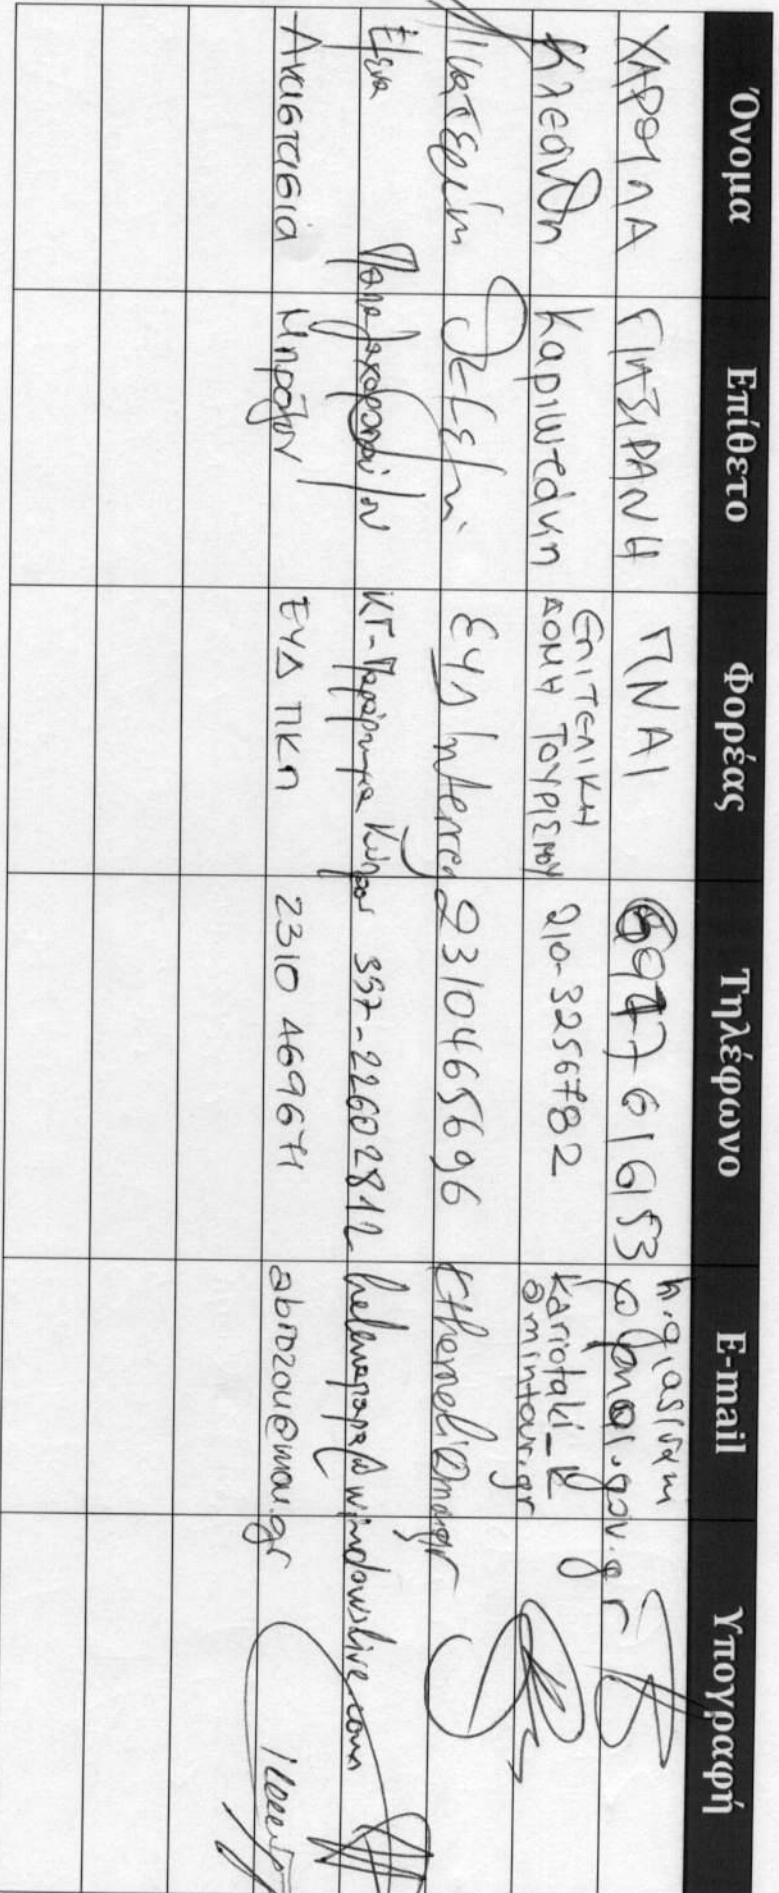 Όνομα Επίθετο Φορέας Τηλέφωνο E-mail Υπογραφή
ΧΑΡΘΥΛΑ ΓΙΑΣΙΡΑΝΗ ΓΝΑΙ 6977616153
Κλεάνθη Καριωτάκη ΕΠΙΤΕΛΙΚΗ ΔΟΜΗ ΤΟΥΡΙΣΜΟΥ 210-3256782 kariotaki_k@mintour.gr
Αικατερίνη Θεμελή ΕΥΔ Interreg 2310465696 kthemeli@mou.gr
Έλενα Παπαζαχαροπούλου ΚΓ-Παράρτημα Κύπρου 357-22602812 windowslive.com
Αναστασία Μπρόζου ΕΥΔ ΠΚΠ 2310 469671 abrozou@mou.gr